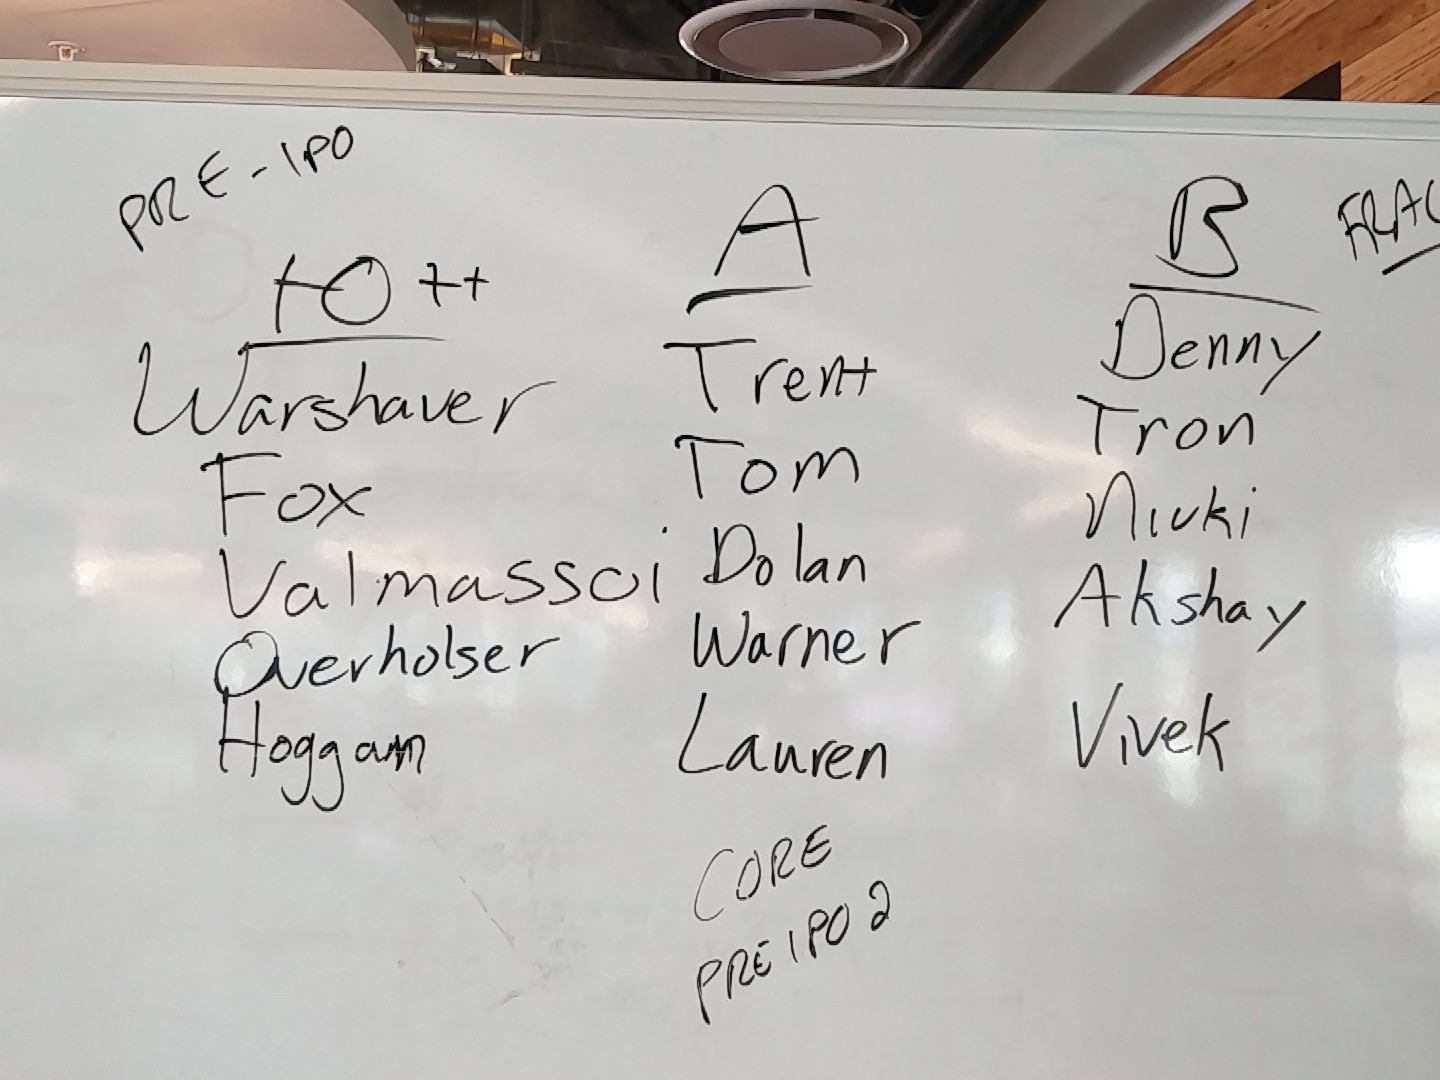 PRE-IPO
A
B
FRAC
++
Warshaver
Fox
Valmassoi
Overholser
Hoggam
Trent
Tom
Dolan
Warner
Lauren
CORE
PRE IPO 2
Denny
Tron
Nivki
Akshay
Vivek